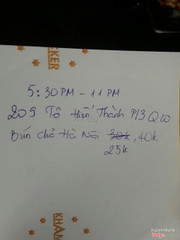 5:30PM - 11PM
209 Tô Hiến Thành P13 Q10
Bún Chả Hà Nội 30k, 40k
25k